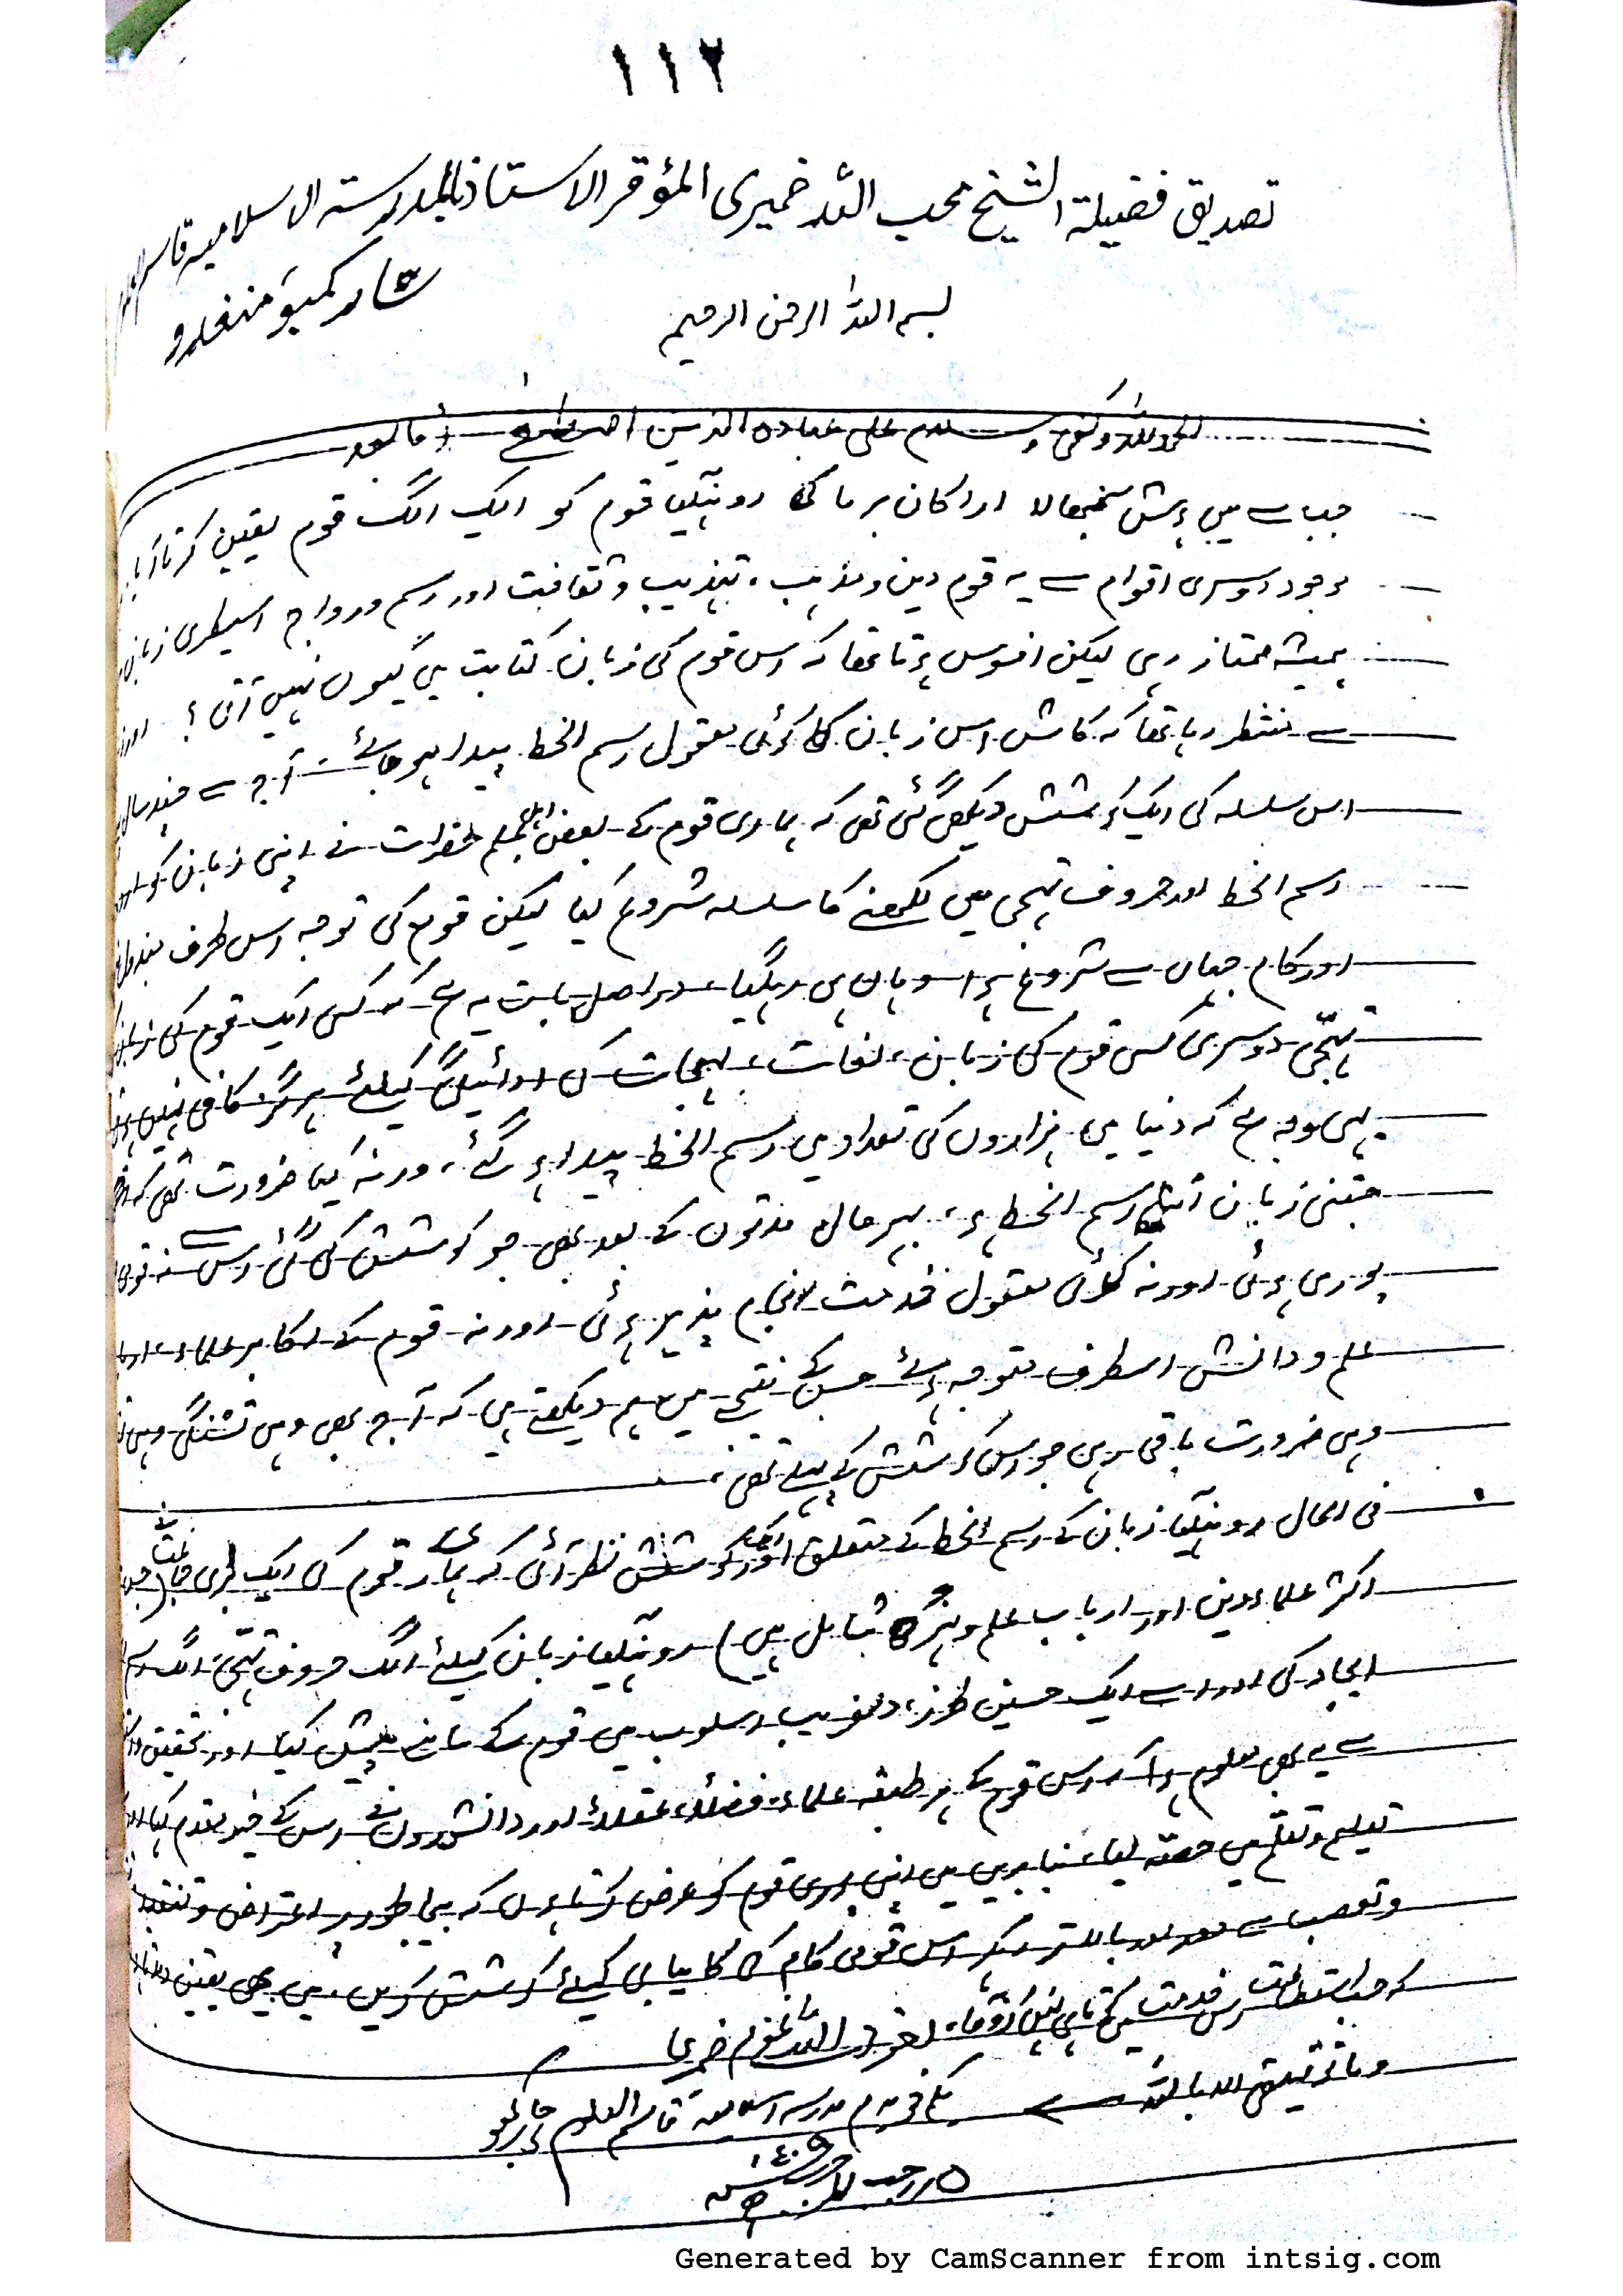 ۱۱۲
تصدیق فضیلة الشیخ محب اللہ خمیری المؤقر الاستاذ بالمدرستہ الاسلامیہ قاسم العلوم
بسم اللہ الرحمن الرحیم
الحمدللہ وکفی وسلام علی عبادہ الذین اصطفیٰ أما بعد
جب سے میں ہوش سنبھالا اراکان برما کی روہنگیا قوم کو الگ الگ قوم یقین کرتا آیا
موجود دوسری اقوام سے یہ قوم دین ومذہب، تہذیب وثقافت اور رسم ورواج اسیطری زبان
ہمیشہ ممتاز رہی لیکن افسوس ہوتا تھا کہ اس قوم کی زبان کتابت میں کیوں نہیں آتی ؟
سے منتظر رہا تھا کہ کاش اس زبان کا کوئی معقول رسم الخط پیدا ہو جائے آج سے چند سال
اس سلسلہ کی ایک کوشش دیکھی گئی تھی کہ ہماری قوم کے بعض اہل علم حضرات نے اپنی زبان کو
رسم الخط اور حروف تہجی میں لکھنے کا سلسلہ شروع کیا لیکن قوم کی توجہ اس طرف
اور کام جہاں سے شروع ہوا سو وہاں ہی رہگیا، دراصل بات یہ ہے کہ کسی ایک قوم کی
تہجّی دوسری کسی قوم کی زبان، لغات، لہجات کی ادائیگی کیلئے ہرگز کافی نہیں
یہی وجہ ہے کہ دنیا میں ہزاروں کی تعداد میں رسم الخط پیدا ہوگئے، ورنہ کیا ضرورت تھی کہ
جتنی زبان اتنا رسم الخط ہو، بہر حال مدتوں کے بعد بھی جو کوشش کی گئی اس سے نہ تو
پوری ہوئی اور نہ کوئی معقول خدمت انجام پذیر ہوئی اور نہ قوم کے اکابر علماء
علم ودانش اسطرف متوجہ ہوئے جس کے نتیجے میں ہم دیکھتے ہیں کہ آج بھی وہی تشنگی
وہی ضرورت باقی رہی جو اس کوشش کے پہلے تھی،
فی الحال روہنگیا زبان کے رسم الخط کے متعلق اور کوشش نظر آئی کہ ہمارے قوم کی ایک بڑی جماعت نے
اکثر علماء دین اور ارباب علم وہنر شامل ہیں) روہنگیا زبان کیلئے الگ حروف تہجّی، الگ
ایجاد کی اور اسے ایک حسین طرز، دلفریب اسلوب میں قوم کے سامنے پیش کیا اور تحقیق
سے یہ بھی معلوم ہوا کہ اس قوم کے ہر طبقہ علماء، فضلاء، عقلاء اور دانشوروں نے اس کے خیر مقدم کیا
تعلیم وتعلم میں حصّہ لیا، بنا بریں میں اپنی پوری قوم کو عرض کرتا ہوں کہ بیجا طور پر اعتراض وتنقید
وتعصب سے دور اور بالاتر رہ کر اس قومی کام کی کامیابی کیلئے کوشش کریں، میں بھی یقین
کہ حسب استطاعت اس خدمت میں کوتاہی نہیں کروں گا،
وما توفیقی الا باللہ
خادم مدرسہ اسلامیہ قاسم العلوم
Generated by CamScanner from intsig.com